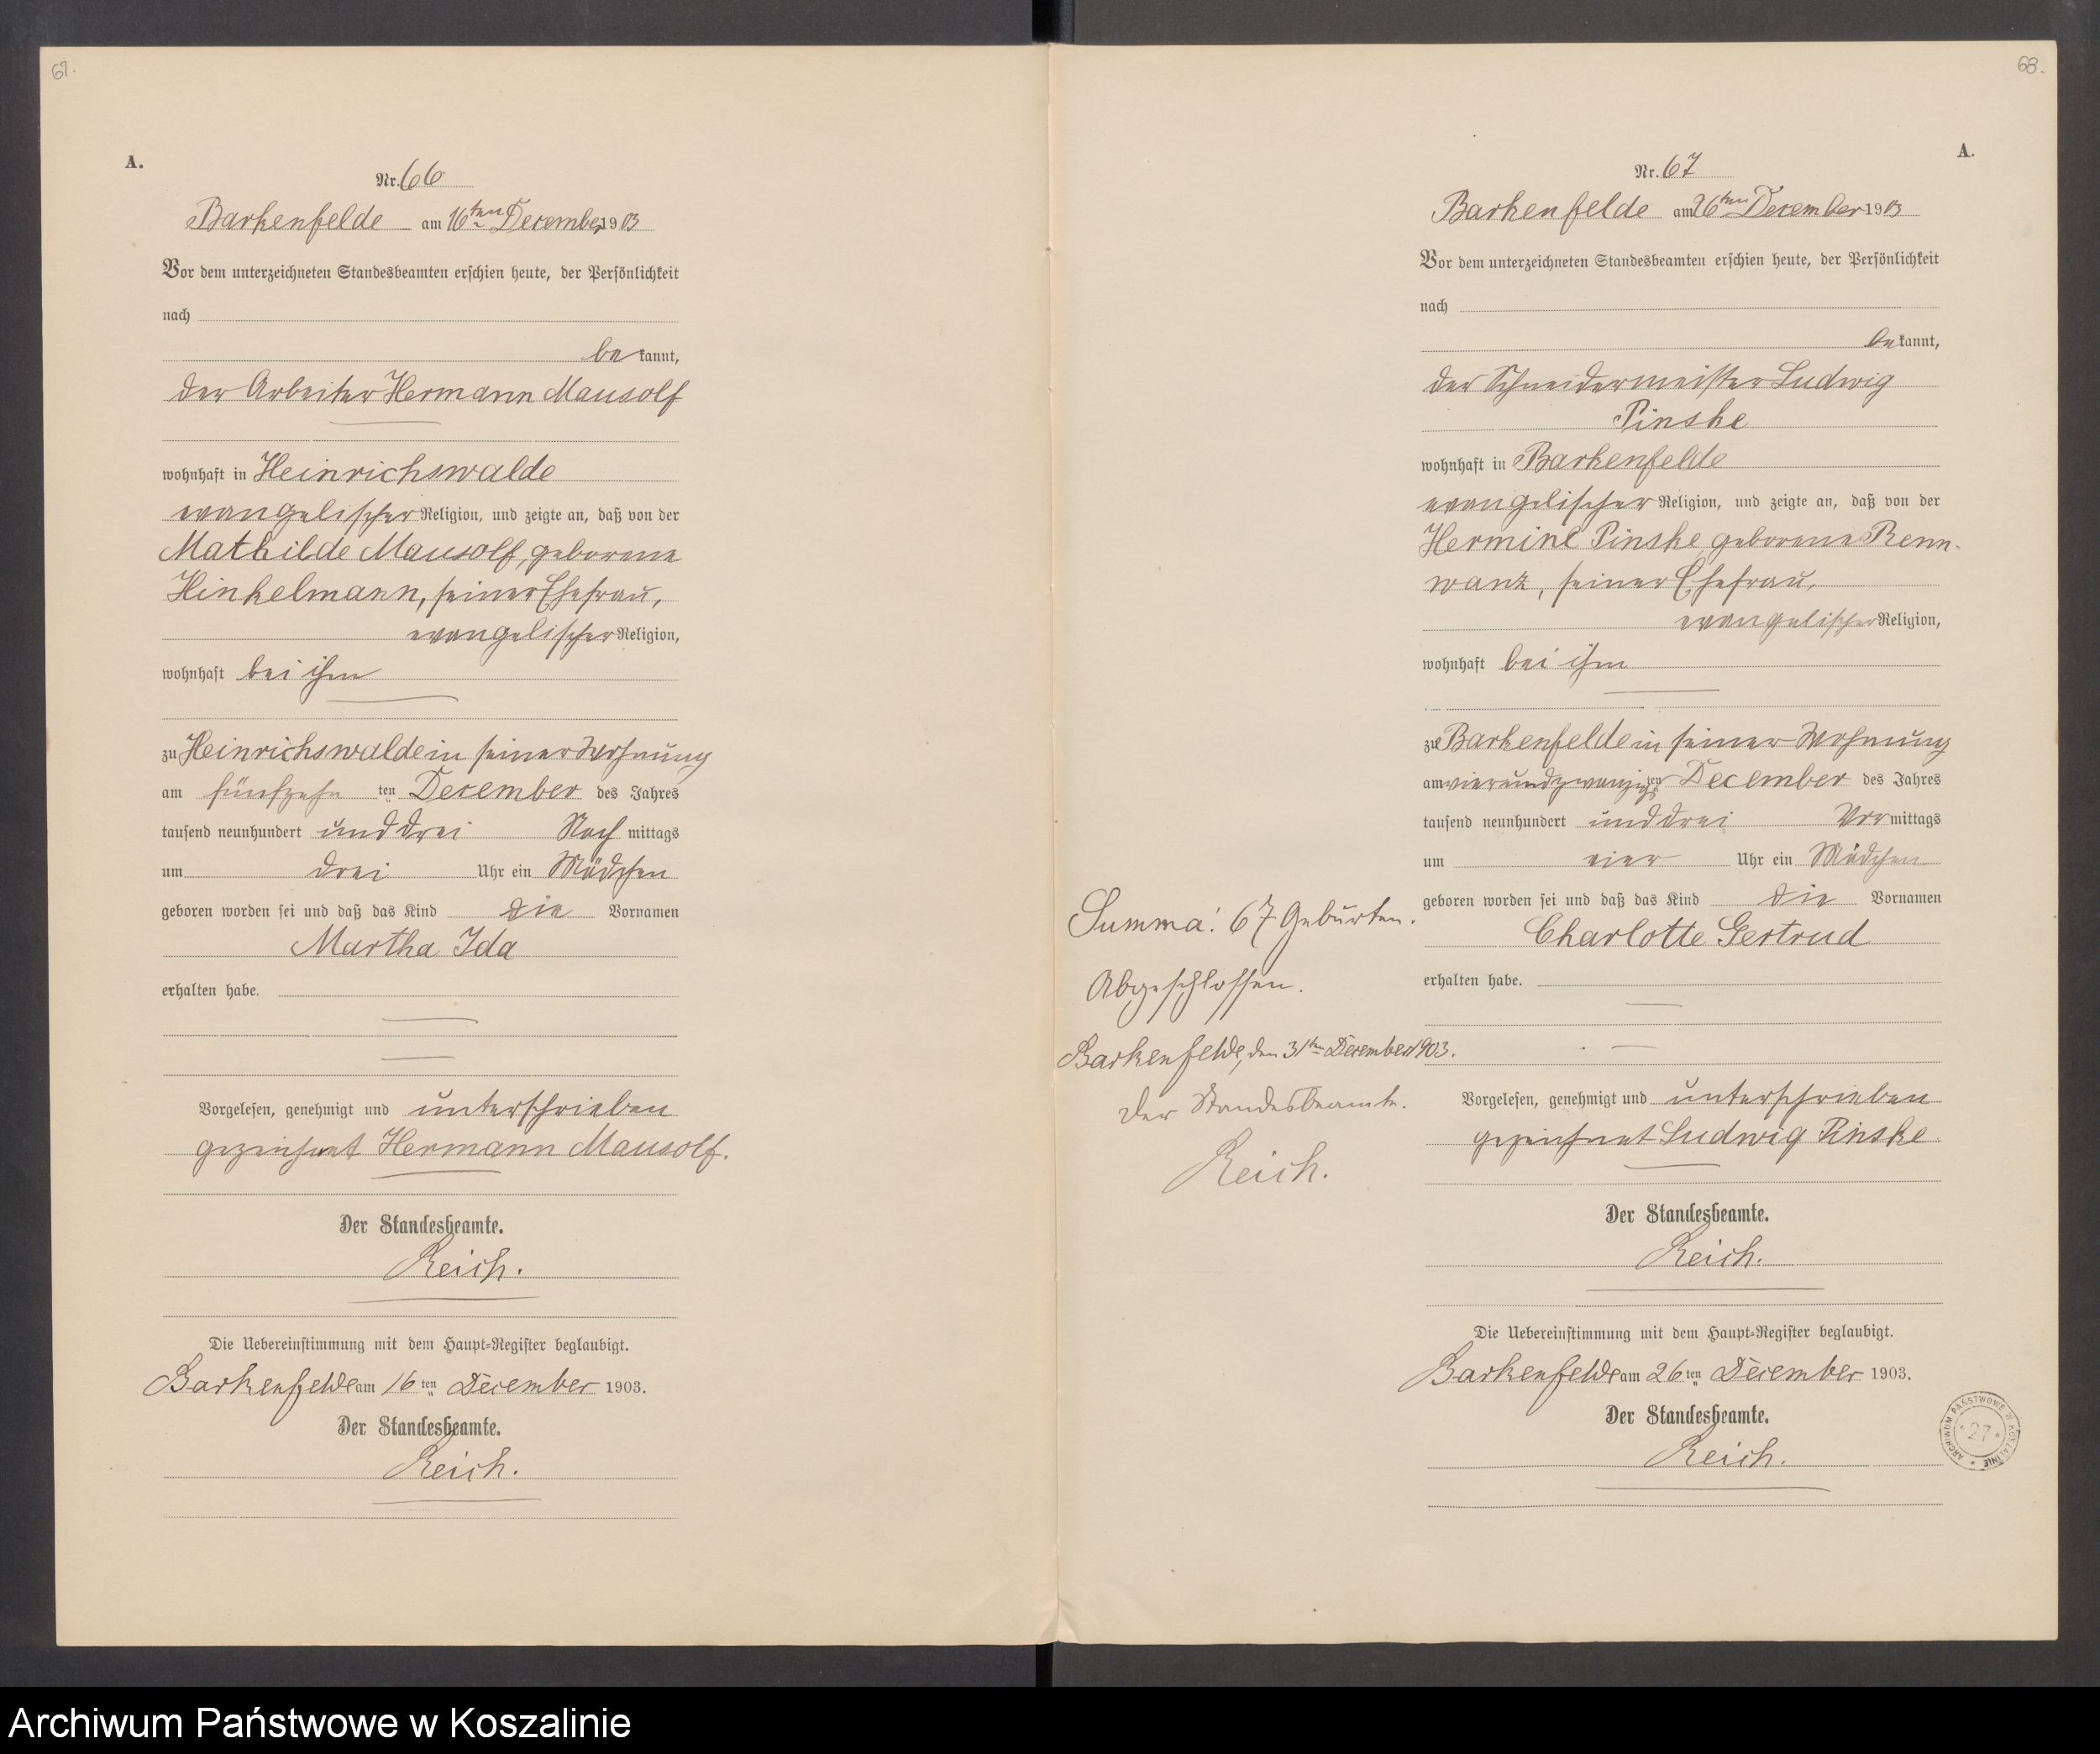 67.
A.
Nr. 66
Barkenfelde am 16ten December 1903
Vor dem unterzeichneten Standesbeamten erschien heute, der Persönlichkeit
nach
bekannt,
der Arbeiter Hermann Mausolf
wohnhaft in Heinrichswalde
evangelischer Religion, und zeigte an, daß von der
Mathilde Mausolf, geborene
Hinkelmann, seiner Ehefrau,
evangelischer Religion,
wohnhaft bei ihm
zu Heinrichswalde in seiner Wohnung
am fünfzehnten December des Jahres
tausend neunhundert und drei Nachmittags
um drei Uhr ein Mädchen
geboren worden sei und daß das Kind die Vornamen
Martha Ida
erhalten habe.
Vorgelesen, genehmigt und unterschrieben
gezeichnet Hermann Mausolf.
Der Standesbeamte.
Reich.
Die Uebereinstimmung mit dem Haupt-Register beglaubigt.
Barkenfelde am 16ten December 1903.
Der Standesbeamte.
Reich.
68.
A.
Nr. 67
Barkenfelde am 26ten December 1903
Vor dem unterzeichneten Standesbeamten erschien heute, der Persönlichkeit
nach
bekannt,
der Schneidermeister Ludwig
Pinske
wohnhaft in Barkenfelde
evangelischer Religion, und zeigte an, daß von der
Hermine Pinske geborene Renn-
wanz, seiner Ehefrau,
evangelischer Religion,
wohnhaft bei ihm
zu Barkenfelde in seiner Wohnung
am vierundzwanzigsten December des Jahres
tausend neunhundert und drei Vormittags
um vier Uhr ein Mädchen
geboren worden sei und daß das Kind die Vornamen
Charlotte Gertrud
erhalten habe.
Vorgelesen, genehmigt und unterschrieben
gezeichnet Ludwig Pinske
Der Standesbeamte.
Reich.
Die Uebereinstimmung mit dem Haupt-Register beglaubigt.
Barkenfelde am 26ten December 1903.
Der Standesbeamte.
Reich.
Summa: 67 Geburten.
Abgeschlossen.
Barkenfelde, den 31ten December 1903.
Der Standesbeamte.
Reich.
ARCHIWUM PAŃSTWOWE W KOSZALINIE
27
Archiwum Państwowe w Koszalinie